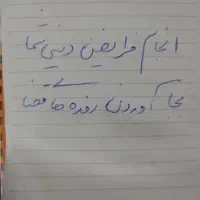 انجام فرایض دینی شما
بجا آوردن روزه های قضا